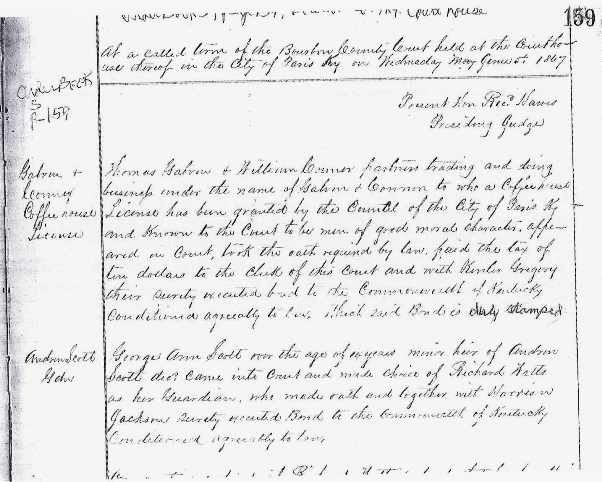 Court house
159
At a called term of the Bourbon County Court held at the Courtho-
use thereof in the City of Paris Ky on Wednesday May 1867
Order Book
S
P-159
Present Hon Richd Hawes
Presiding Judge
Galvin &
Conner
Coffee house
License
Thomas Galvin & William Conner partners trading and doing
business under the name of Galvin & Connor to who a Coffee house
License has been granted by the Council of the City of Paris Ky
and Known to the Court to be men of good moral character, appe-
ared in Court, took the oath required by law, paid the tax of
ten dollars to the Clerk of this Court and with Gregory
their surety executed bond to the Commonwealth of Kentucky
Conditioned agreeably to law, which said Bond is duly stamped
Andrew Scott
Gdn
George Ann Scott over the age of years minor heir of Andrew
Scott decd came into Court and made choice of Richard Watts
as her Guardian, who made oath and together with Harrison
Jackson surety executed Bond to the Commonwealth of Kentucky
Conditioned agreeably to law,